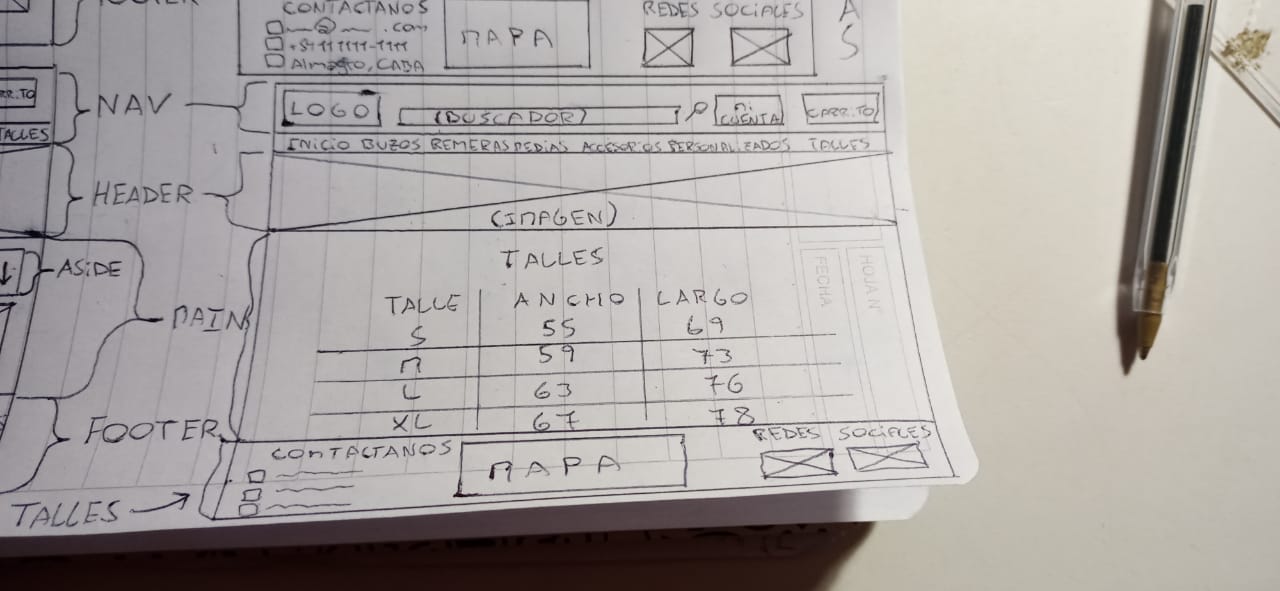 CONTACTANOS
.com
Almagro, CABA
MAPA
REDES SOCIALES
A
S
RR.TO
TALLES
NAV
LOGO
(BUSCADOR)
MI CUENTA
CARR.TO
INICIO BUZOS REMERAS MEDIAS ACCESORIOS PERSONALIZADOS TALLES
HEADER
(IMAGEN)
ASIDE
MAIN
TALLES
TALLE ANCHO LARGO
S 55 69
M 59 73
L 63 76
XL 67 78
HOJA N°
FECHA
FOOTER
CONTACTANOS
MAPA
REDES SOCIALES
TALLES